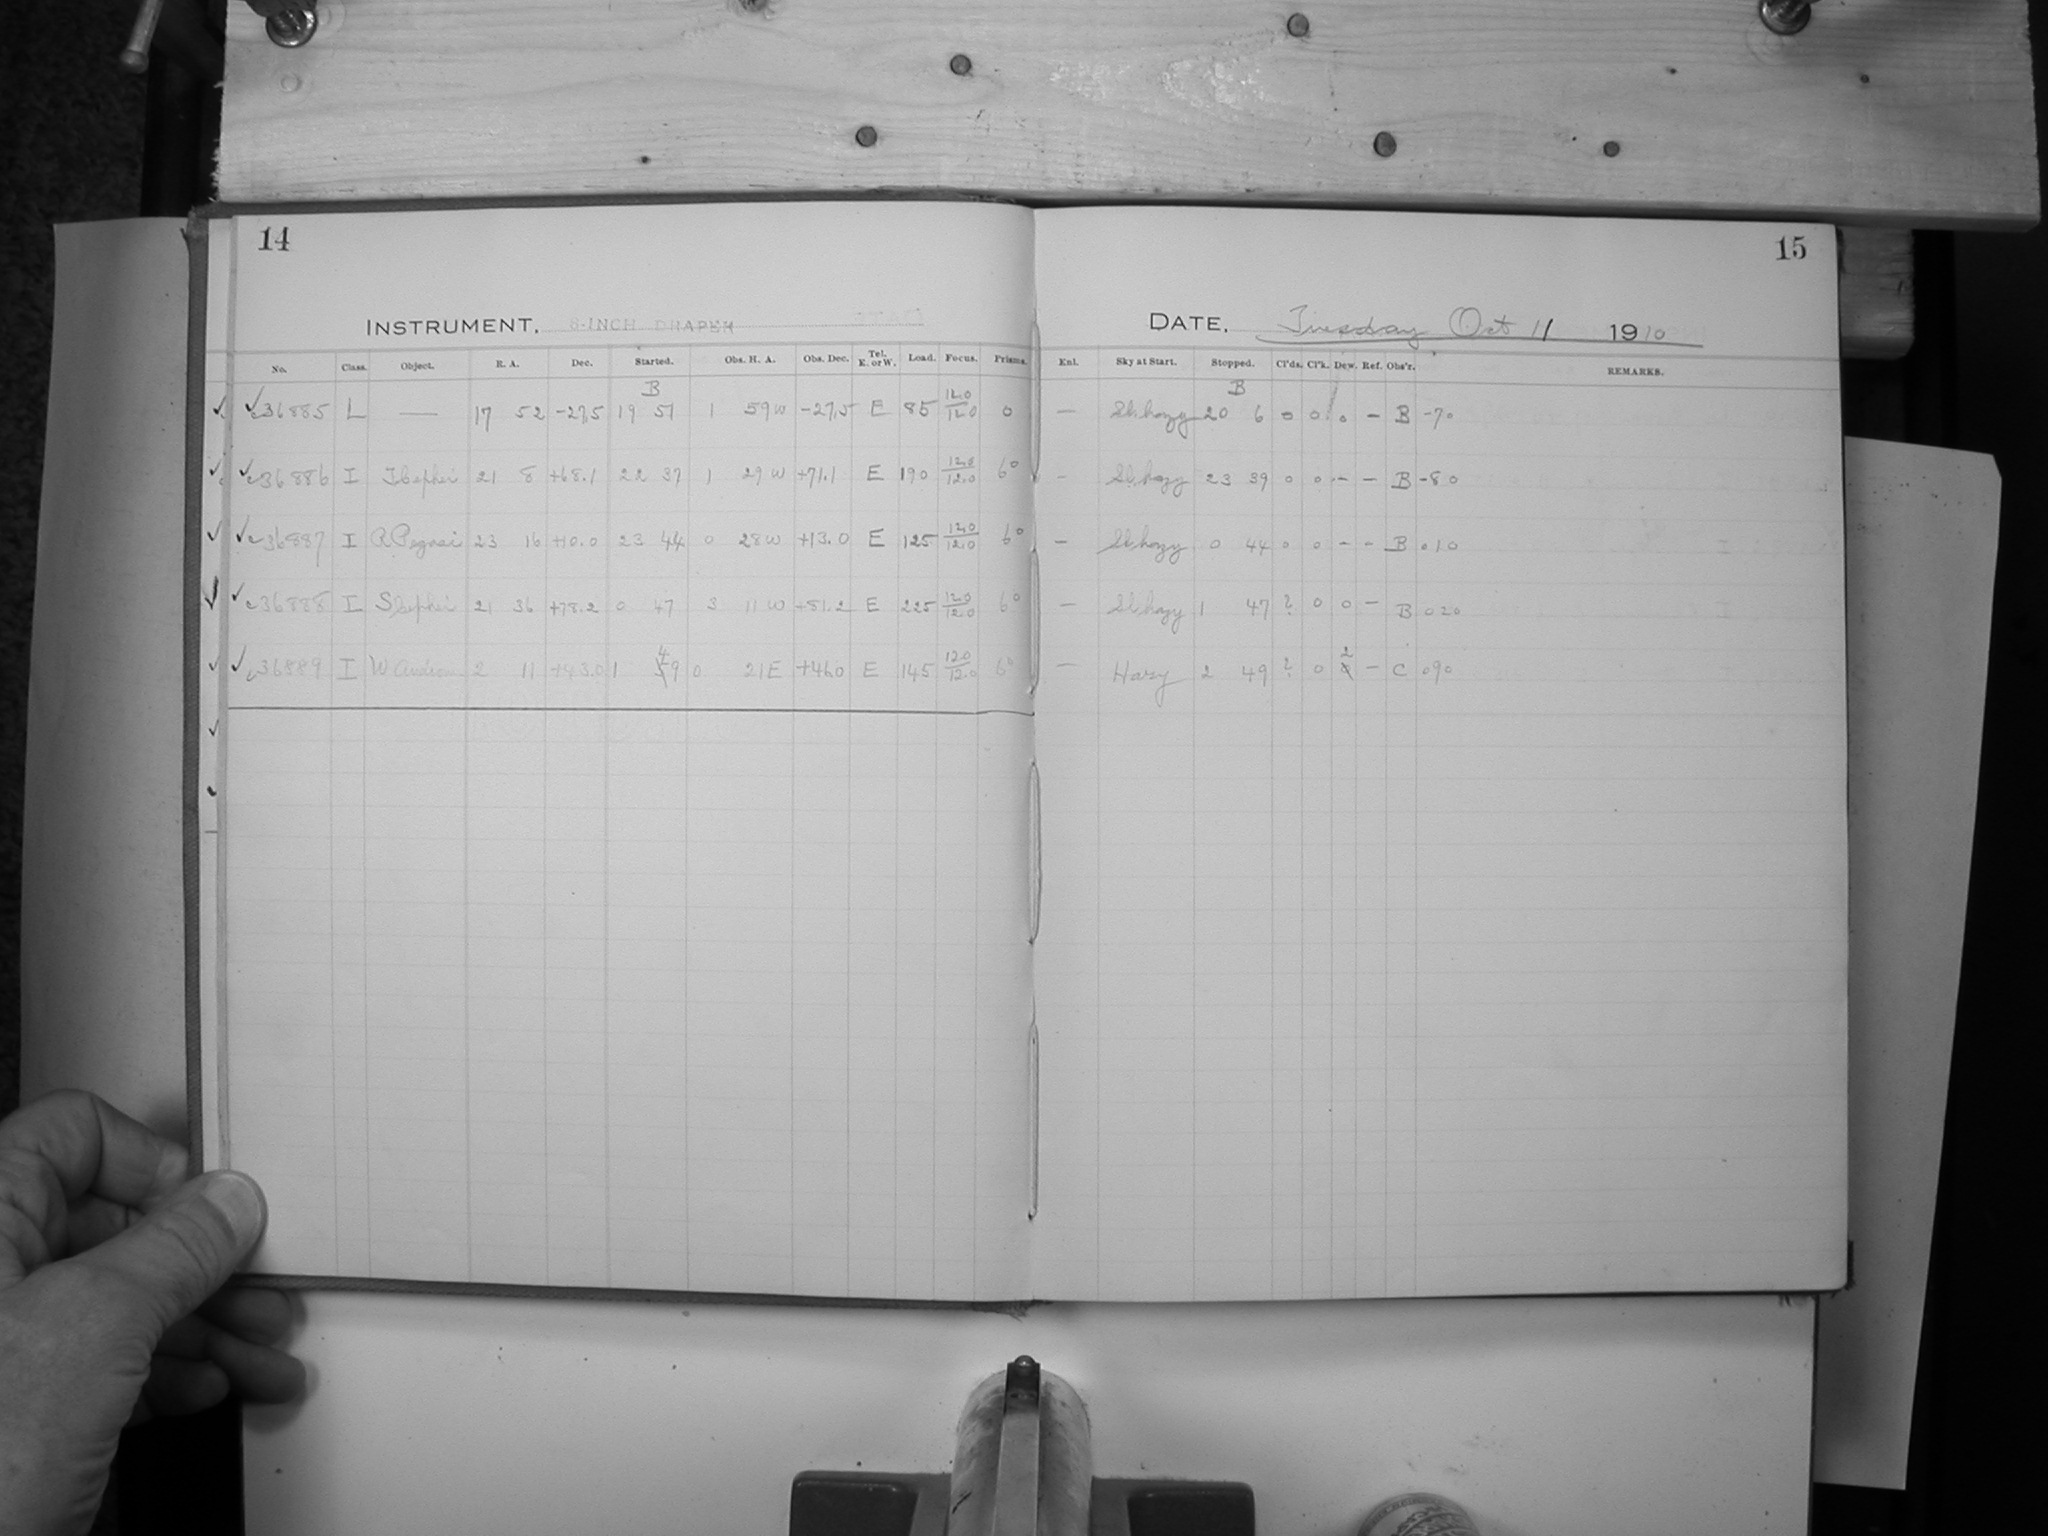 14
15
INSTRUMENT, 8-INCH DRAPER
DATE, Tuesday Oct 11 1910
No. Class. Object. R. A. Dec. Started. Obs. H. A. Obs. Dec. Tel. E. or W. Load. Focus. Prisms. Enl. Sky at Start. Stopped. Cl'ds. Cl'k. Dew. Ref. Obs'r. REMARKS.
B B
36885 L — 17 52 -27.5 19 51 1 59 W -27.5 E 85 12.0/12.0 0 — Sl. hazy 20 6 0 0 0 – B -70
36886 I T Cephei 21 8 +68.1 22 37 1 29 W +71.1 E 190 12.0/12.0 6° – Sl. hazy 23 39 0 0 – – B -80
36887 I R Pegasi 23 16 +10.0 23 44 0 28 W +13.0 E 125 12.0/12.0 6° — Sl. hazy 0 44 0 0 – – B 010
36888 I S Cephei 21 36 +78.2 0 47 3 11 W +81.2 E 225 12.0/12.0 6° — Sl. hazy 1 47 ? 0 0 – B 020
36889 I W Androm 2 11 +43.0 1 49 0 21 E +46.0 E 145 12.0/12.0 6° — Hazy 2 49 ? 0 2 – C 090